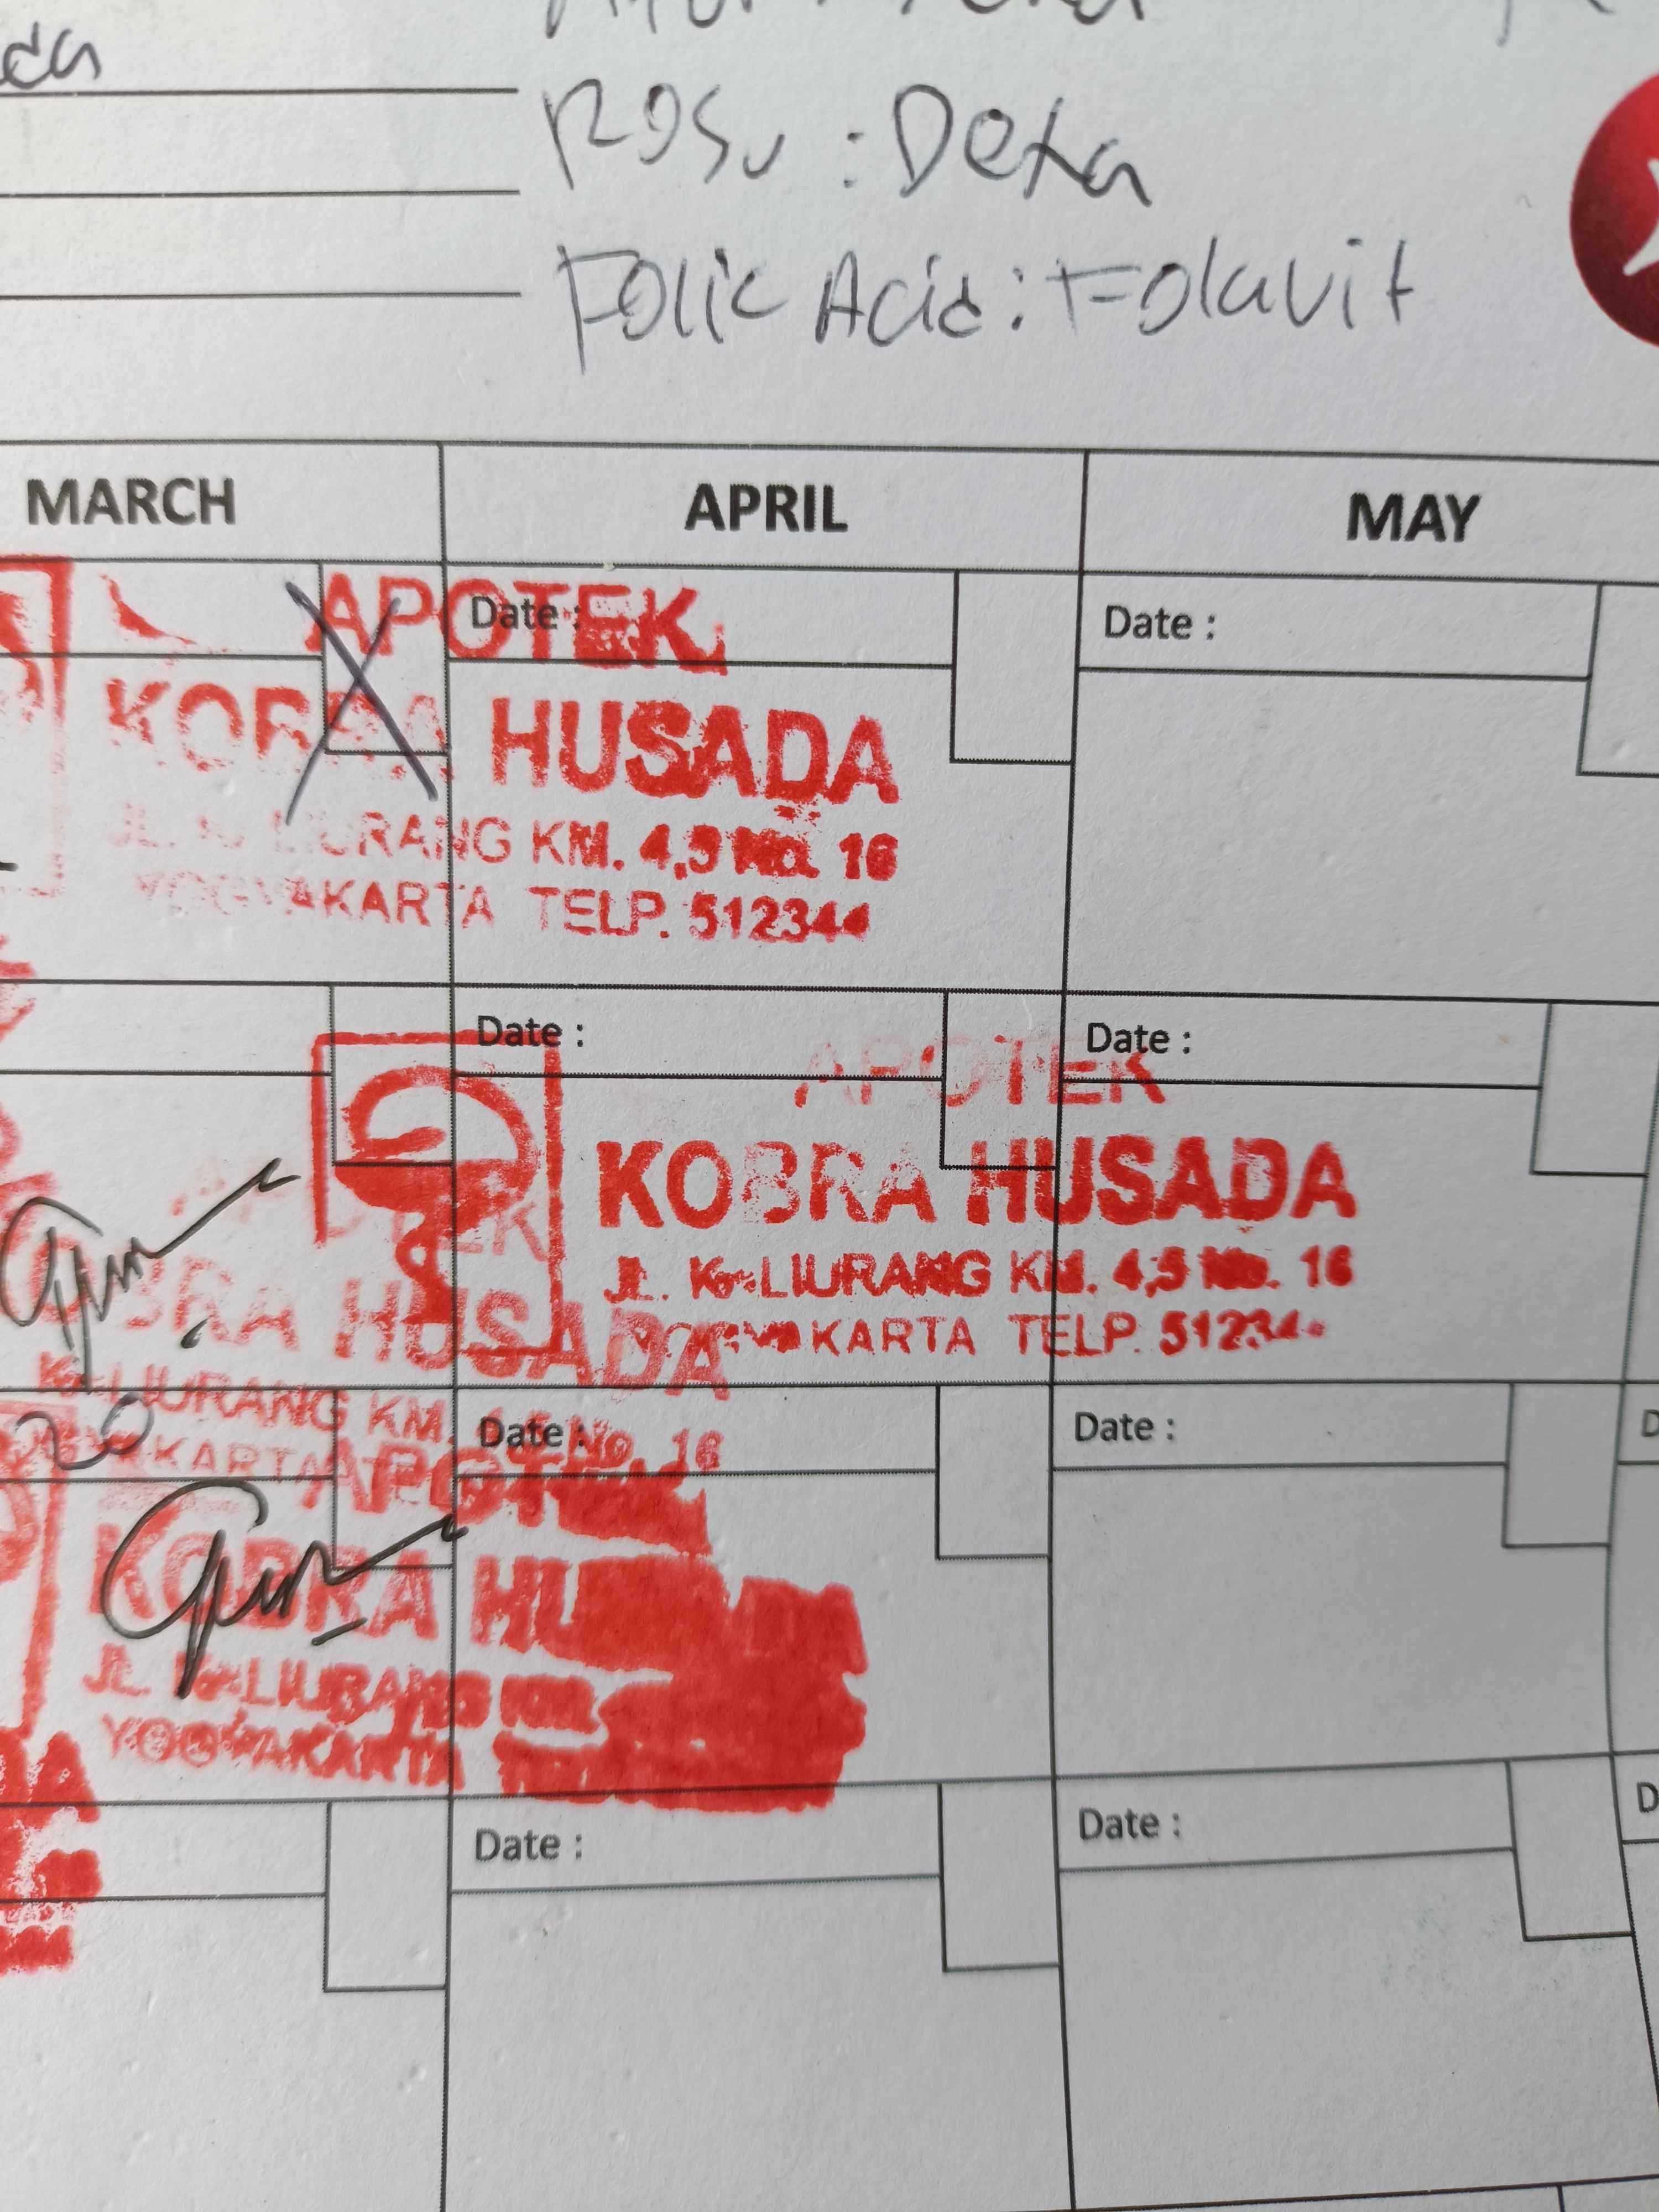 Rosu : Dexa
Folic Acid : Folavit
MARCH APRIL MAY
Date : Date :
APOTEK
KOBRA HUSADA
KM. 4,5 No. 16
YOGYAKARTA TELP. 512344
Date : Date :
APOTEK
KOBRA HUSADA
JL. KALIURANG KM. 4,5 No. 16
YOGYAKARTA TELP. 51234
APOTEK
KOBRA HUSADA
KALIURANG KM. 4,5 No. 16
YOGYAKARTA
20
Date : Date :
APOTEK
KOBRA HU
JL. KALIURANG KM.
YOGYAKARTA
Date : Date :